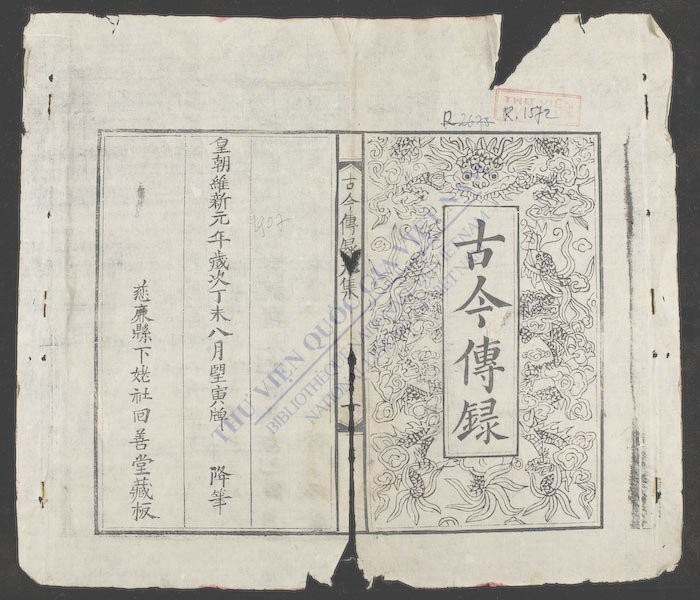 R.2673 R.1572
古今傳録
古今傳録
集
皇朝維新元年歲次丁未八月望寅牌 降筆
慈廉縣下姥社回善堂藏板
407
THƯ VIỆN QUỐC GIA VIỆT NAM